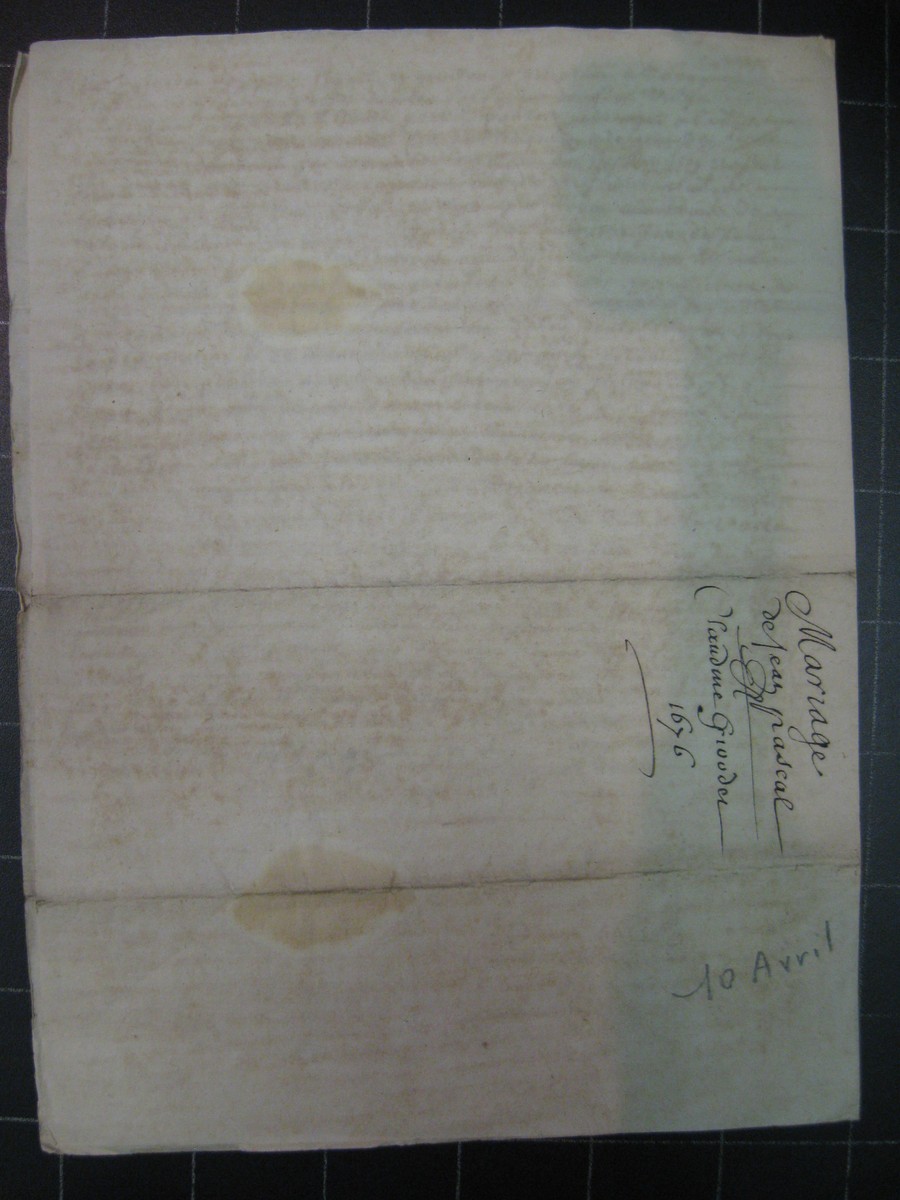 Mariage
de Jean pascal
&
Claudine
1676
10 Avril